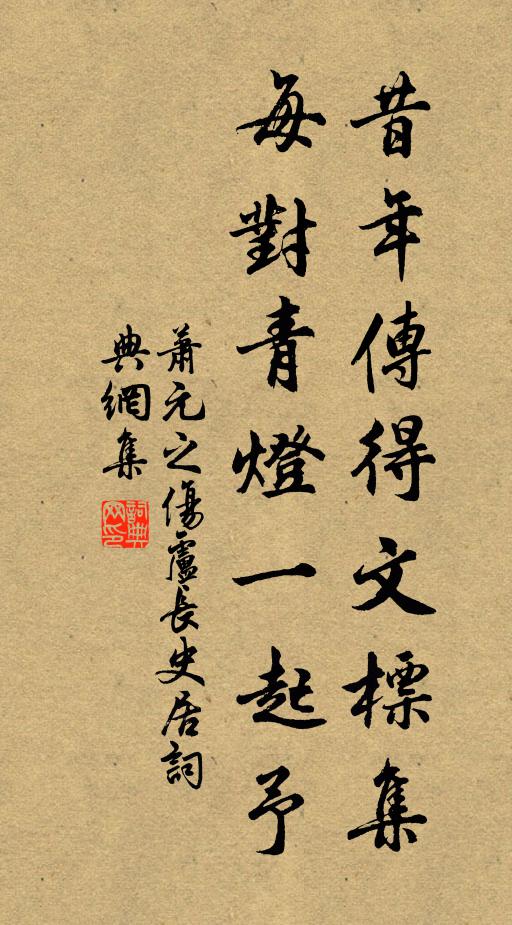 昔年傳得文標集
每對青燈一起予
蕭元之傷盧長史居詞
典網集
詞典網印